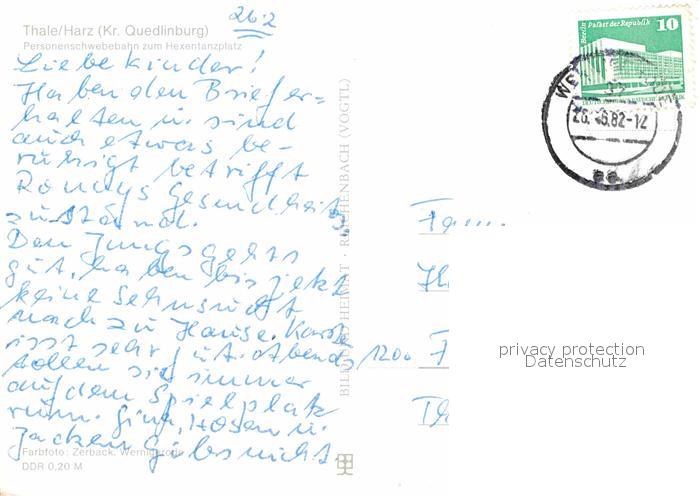 26.2
Thale/Harz (Kr. Quedlinburg)
Personenschwebebahn zum Hexentanzplatz
Liebe Kinder!
Haben den Brief er=
halten u. sind
auch etwas be-
ruhigt betrifft
Ronnys Gesundheits
zustand.
Den Jungs gehts
gut, haben bis jetzt
keine Sehnsucht
nach zu Hause.
isst sehr gut. Abends
tollen sie immer
auf dem Spielplatz
rum. Hosen u.
Jacken gibs nicht
Farbfoto: Zerback, Wernigerode
DDR 0,20 M
BILD UND HEIMAT · REICHENBACH (VOGTL)
Berlin Palast der Republik 10
26.-6.82-12
Fam....
1200
privacy protection
Datenschutz